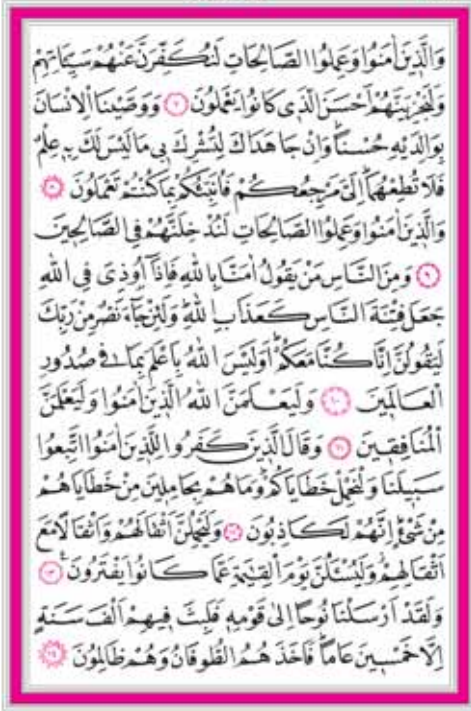 وَالَّذِينَ اٰمَنُوا وَعَمِلُوا الصَّالِحَاتِ لَنُكَفِّرَنَّ عَنْهُمْ سَيِّـَٔاتِهِمْ
وَلَنَجْزِيَنَّهُمْ اَحْسَنَ الَّذِى كَانُوا يَعْمَلُونَ ﴿٧﴾ وَوَصَّيْنَا الْاِنْسَانَ
بِوَالِدَيْهِ حُسْنًا وَاِنْ جَاهَدَاكَ لِتُشْرِكَ بِى مَا لَيْسَ لَكَ بِهٖ عِلْمٌ
فَلَا تُطِعْهُمَا اِلَىَّ مَرْجِعُكُمْ فَاُنَبِّئُكُمْ بِمَا كُنْتُمْ تَعْمَلُونَ ﴿٨﴾
وَالَّذِينَ اٰمَنُوا وَعَمِلُوا الصَّالِحَاتِ لَنُدْخِلَنَّهُمْ فِى الصَّالِحِينَ
﴿٩﴾ وَمِنَ النَّاسِ مَنْ يَقُولُ اٰمَنَّا بِاللّٰهِ فَاِذَٓا اُو۫ذِىَ فِى اللّٰهِ
جَعَلَ فِتْنَةَ النَّاسِ كَعَذَابِ اللّٰهِ وَلَئِنْ جَٓاءَ نَصْرٌ مِنْ رَبِّكَ
لَيَقُولُنَّ اِنَّا كُنَّا مَعَكُمْ اَوَلَيْسَ اللّٰهُ بِاَعْلَمَ بِمَا فِى صُدُورِ
الْعَالَمِينَ ﴿١٠﴾ وَلَيَعْلَمَنَّ اللّٰهُ الَّذِينَ اٰمَنُوا وَلَيَعْلَمَنَّ
الْمُنَافِقِينَ ﴿١١﴾ وَقَالَ الَّذِينَ كَفَرُوا لِلَّذِينَ اٰمَنُوا اتَّبِعُوا
سَبِيلَنَا وَلْنَحْمِلْ خَطَايَاكُمْ وَمَا هُمْ بِحَامِلِينَ مِنْ خَطَايَاهُمْ
مِنْ شَىْءٍ اِنَّهُمْ لَكَاذِبُونَ ﴿١٢﴾ وَلَيَحْمِلُنَّ اَثْقَالَهُمْ وَاَثْقَالًا مَعَ
اَثْقَالِهِمْ وَلَيُسْـَٔلُنَّ يَوْمَ الْقِيٰمَةِ عَمَّا كَانُوا يَفْتَرُونَ ﴿١٣﴾
وَلَقَدْ اَرْسَلْنَا نُوحًا اِلٰى قَوْمِهٖ فَلَبِثَ فِيهِمْ اَلْفَ سَنَةٍ
اِلَّا خَمْسِينَ عَامًا فَاَخَذَهُمُ الطُّوفَانُ وَهُمْ ظَالِمُونَ ﴿١٤﴾